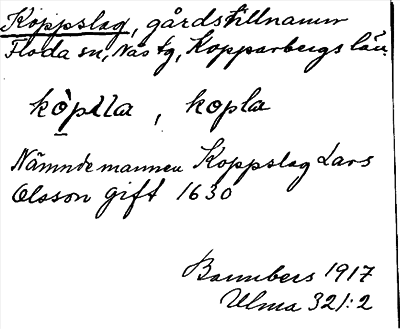 Koppslag, gårdstillnamn
Floda sn, Nås tg, Kopparbergs län.
kòplla, kopla
Nämndemannen Koppslag Lars
Olsson gift 1630
Bannbers 1917
Ulma 321:2